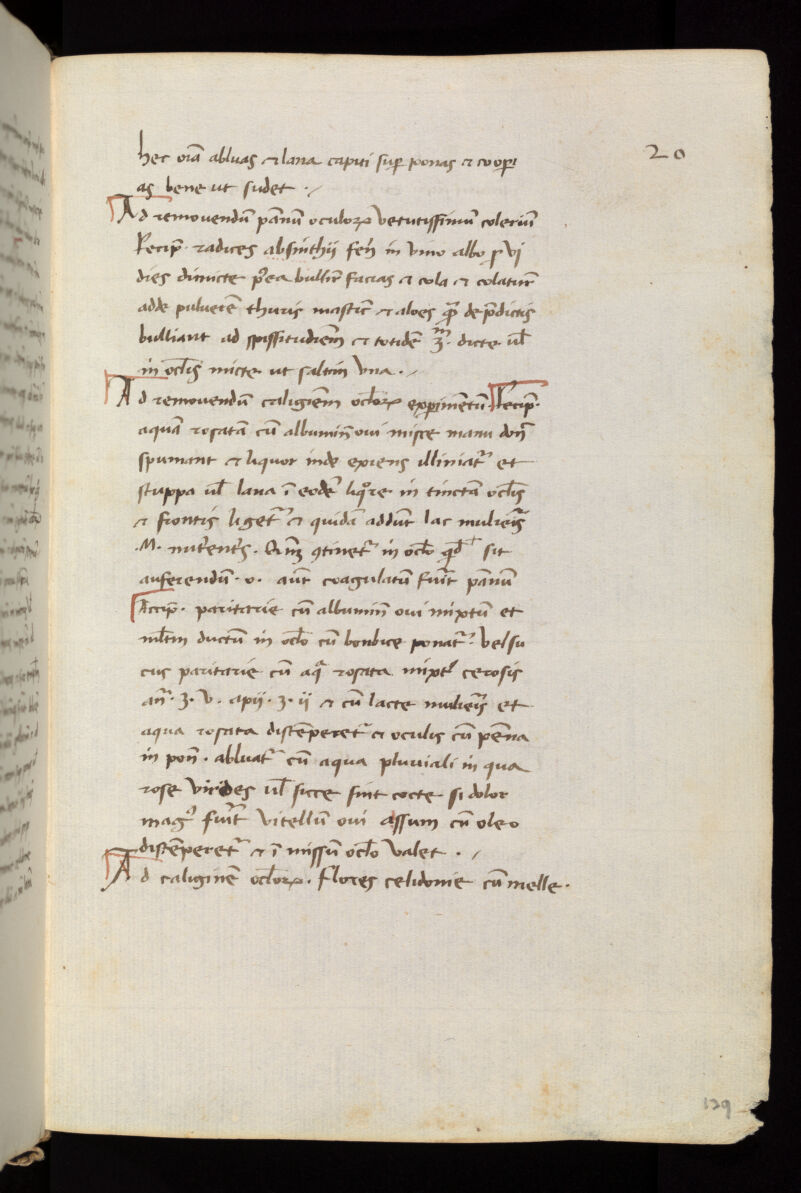 hec oīa abluas et lana capiti suꝑ ponas et cooꝑi
as bene ut sudet ./
20
Ad removendū pānū oculoꝝ vetutissimū coleriū
Recipe. radices absinthii feñ in vino albo ꝑ vi
dies dimicte pͦea bullir̄ facias et cola et colatur̄
adde pulverē thuris mastic̄ et aloes de p̄dictis
bulliant ad spissitudiēm et totidē ʒ. dicte ul̄
in ocl̄is micte ut saltim una ./
Ad removendū caligiēm ocl̄oꝝ exꝑimentū Recipe.
aquā rosatā cū albumiñ ovi misce manu doñ
spumant et liquor inde exiens illiniatᷣ et
stuppa ul̄ lana ī eodē liqͦre in tinctam ocl̄is
et frontis ligetᷣ et quidā addūt lac mulieris
.M. nutͥentis. qtinetᷣ in ocl̄o qd̄ sit
auferendū .v. aūt coagulatū fuīt pānū
Accipe. paritarie cū albumiñ ovi mixtū et
ml̄tm ductū in ocl̄o cū bombice ponatᷣ. Vel su
cus paritarie cū aq̄ rosata mixtᷣ cerosis
añ. ʒ. v. apii. ʒ. ii et cū lacte mulieris et
aqua rosata distēperetᷣ et oculis cū pēna
in poñ. abluatᷣ cū aqua pluviali in qua
rose virides ul̄ sicce sint cocte si dolor
magͦ fuīt vitellū ovi assum cū oleo
distēperetᷣ et ī missū ocl̄o valet ./
Ad caliginē ocl̄oꝝ. flores celidonie cū melle.
139